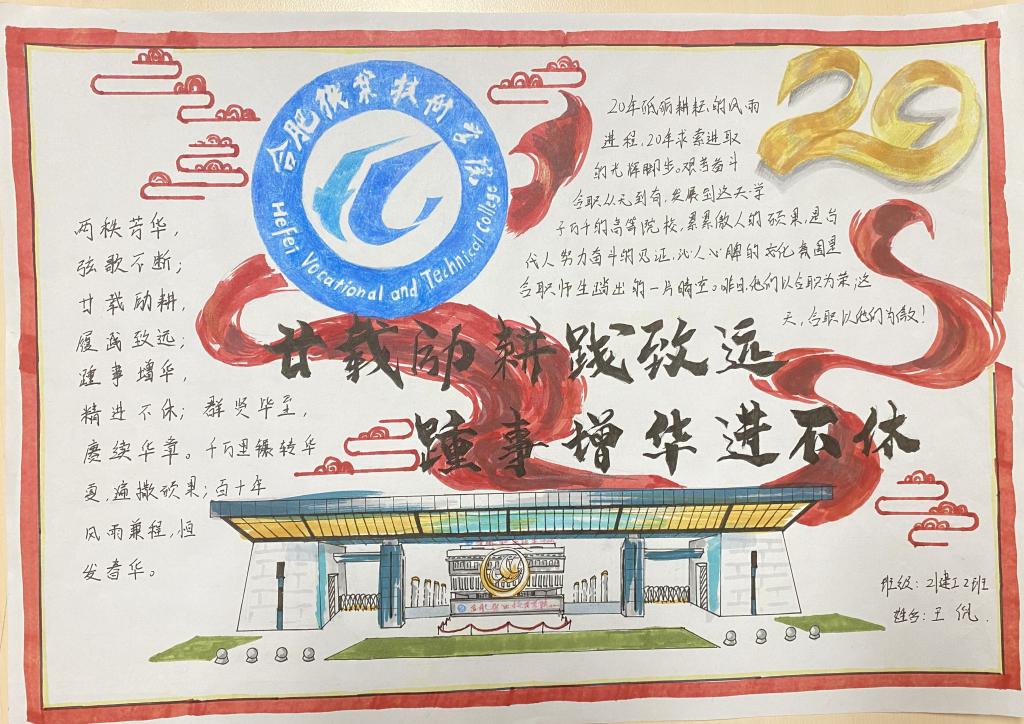 合肥职业技术学院
Hefei Vocational and Technical College
20
20年砥砺耕耘的风雨
进程,20年求索进取
的光辉脚步。艰苦奋斗
合职从无到有,发展到这天学
子万千的高等院校,累累傲人的硕果,是合
代人努力奋斗的见证,沁人心脾的文化氛围是
合职师生踏出的一片晴空。昨日,他们以合职为荣;这
天,合职以他们为傲!
两秩芳华,
弦歌不断;
廿载励耕,
履践致远;
踵事增华,
精进不休;群贤毕至,
赓续华章。千万里辗转华
夏,遍撒硕果;百十年
风雨兼程,恒
发春华。
廿载励耕践致远
踵事增华进不休
合肥职业技术学院
班级:21建工2班
姓名:王倪.